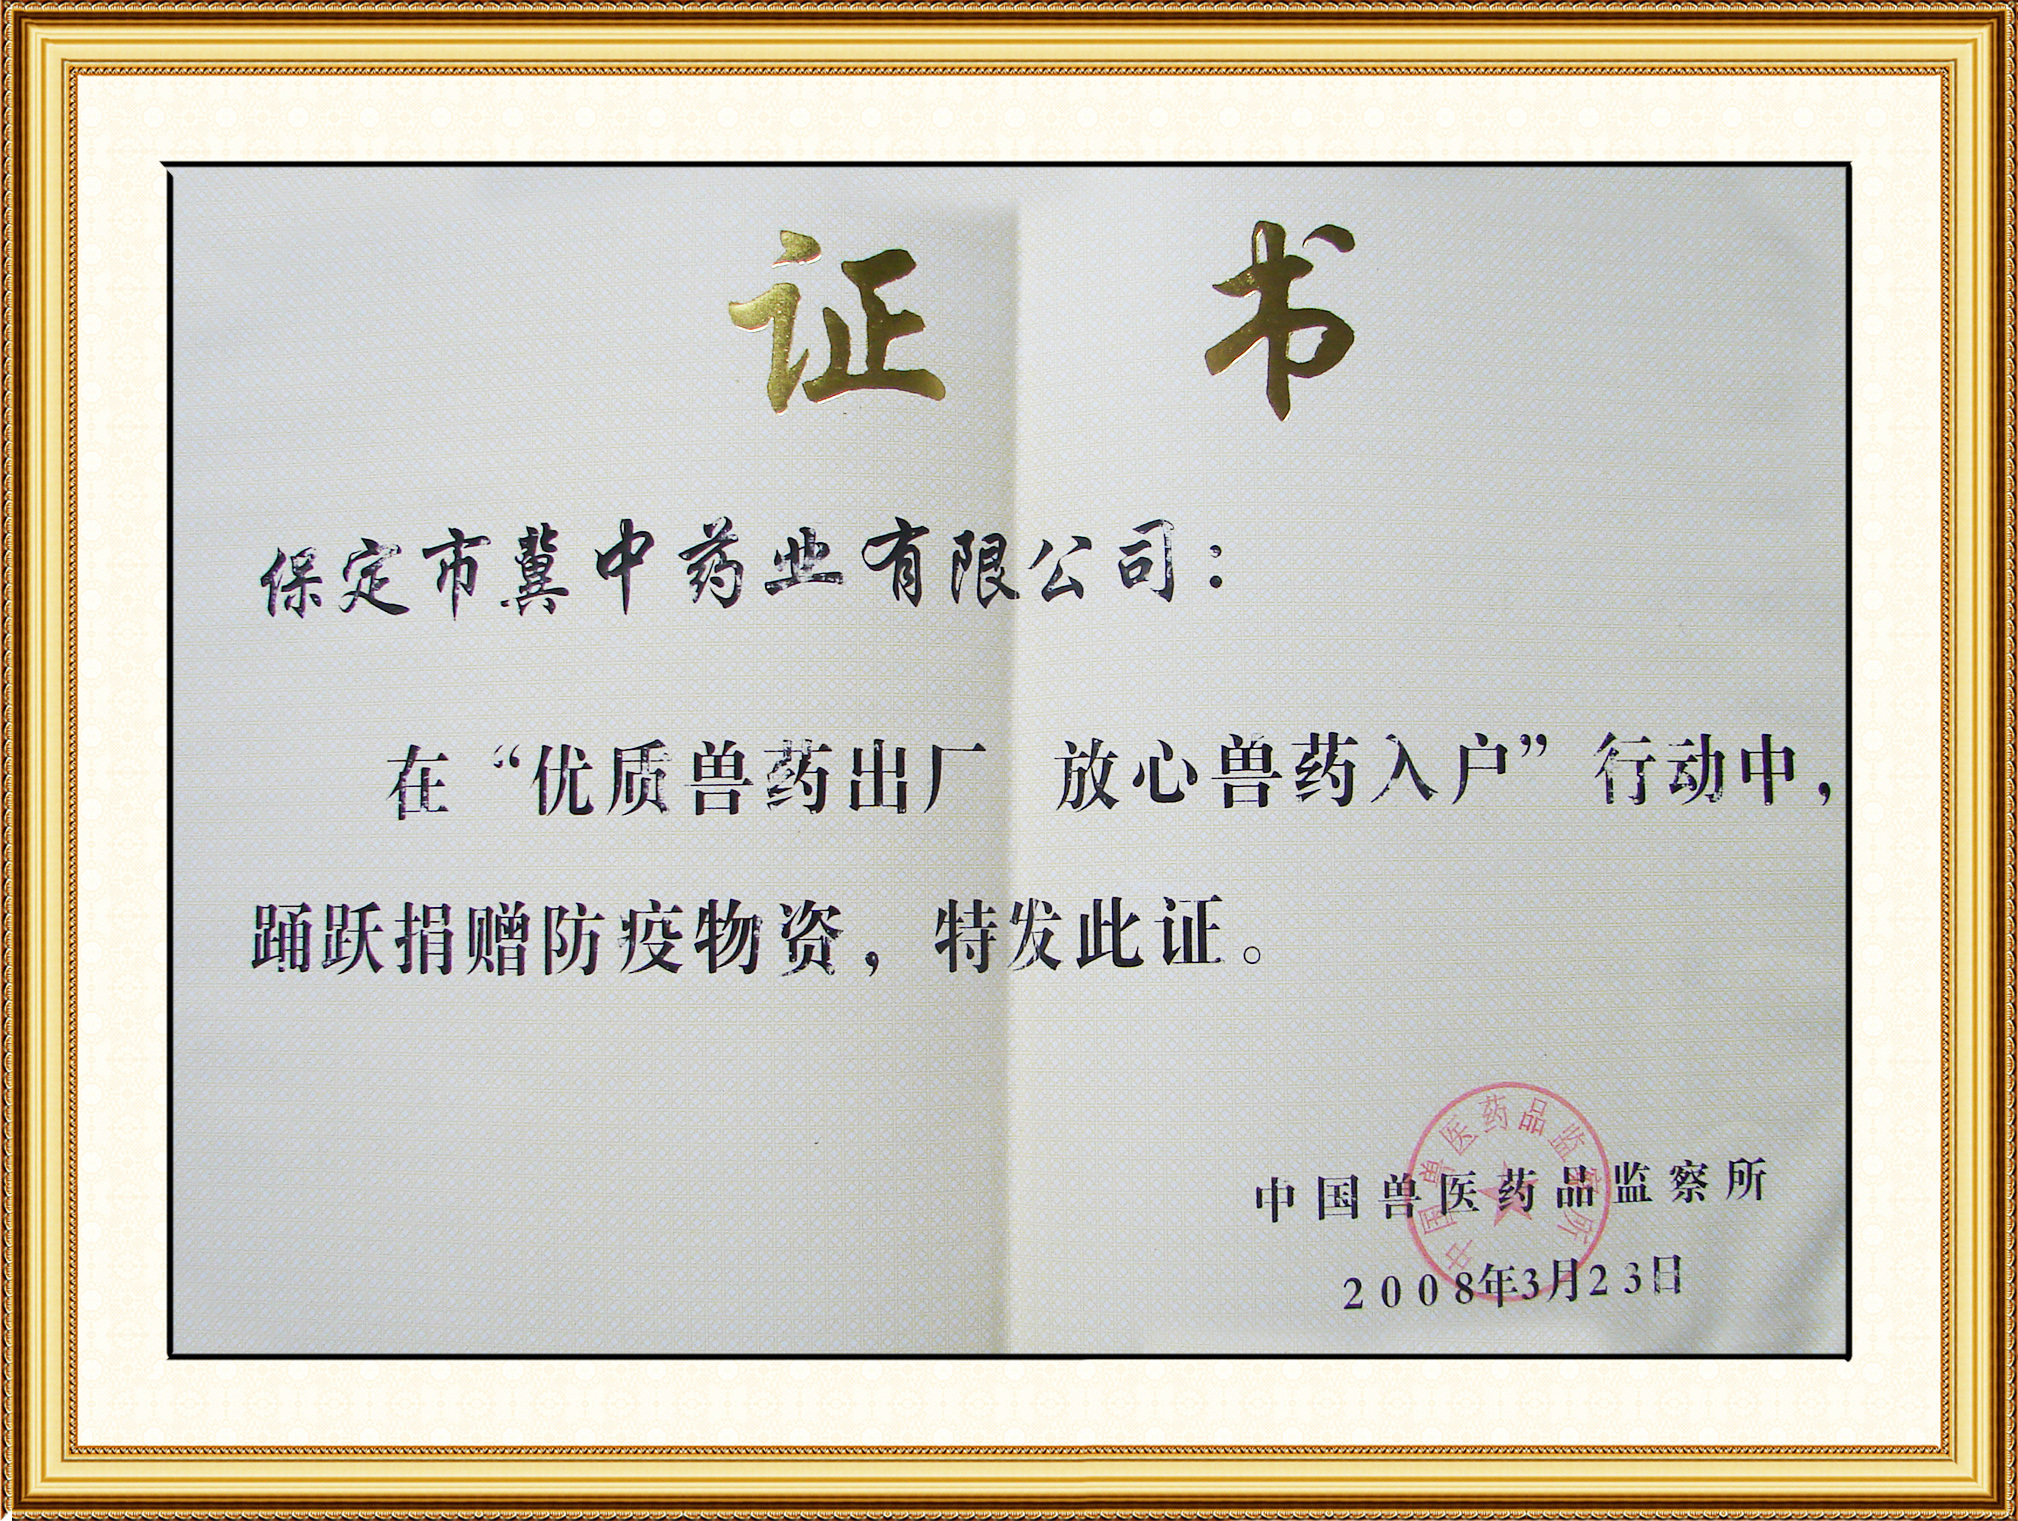 证 书
保定市冀中药业有限公司：
在“优质兽药出厂 放心兽药入户”行动中，
踊跃捐赠防疫物资，特发此证。
中国兽医药品监察所
中国兽医药品监察所
2008年3月23日